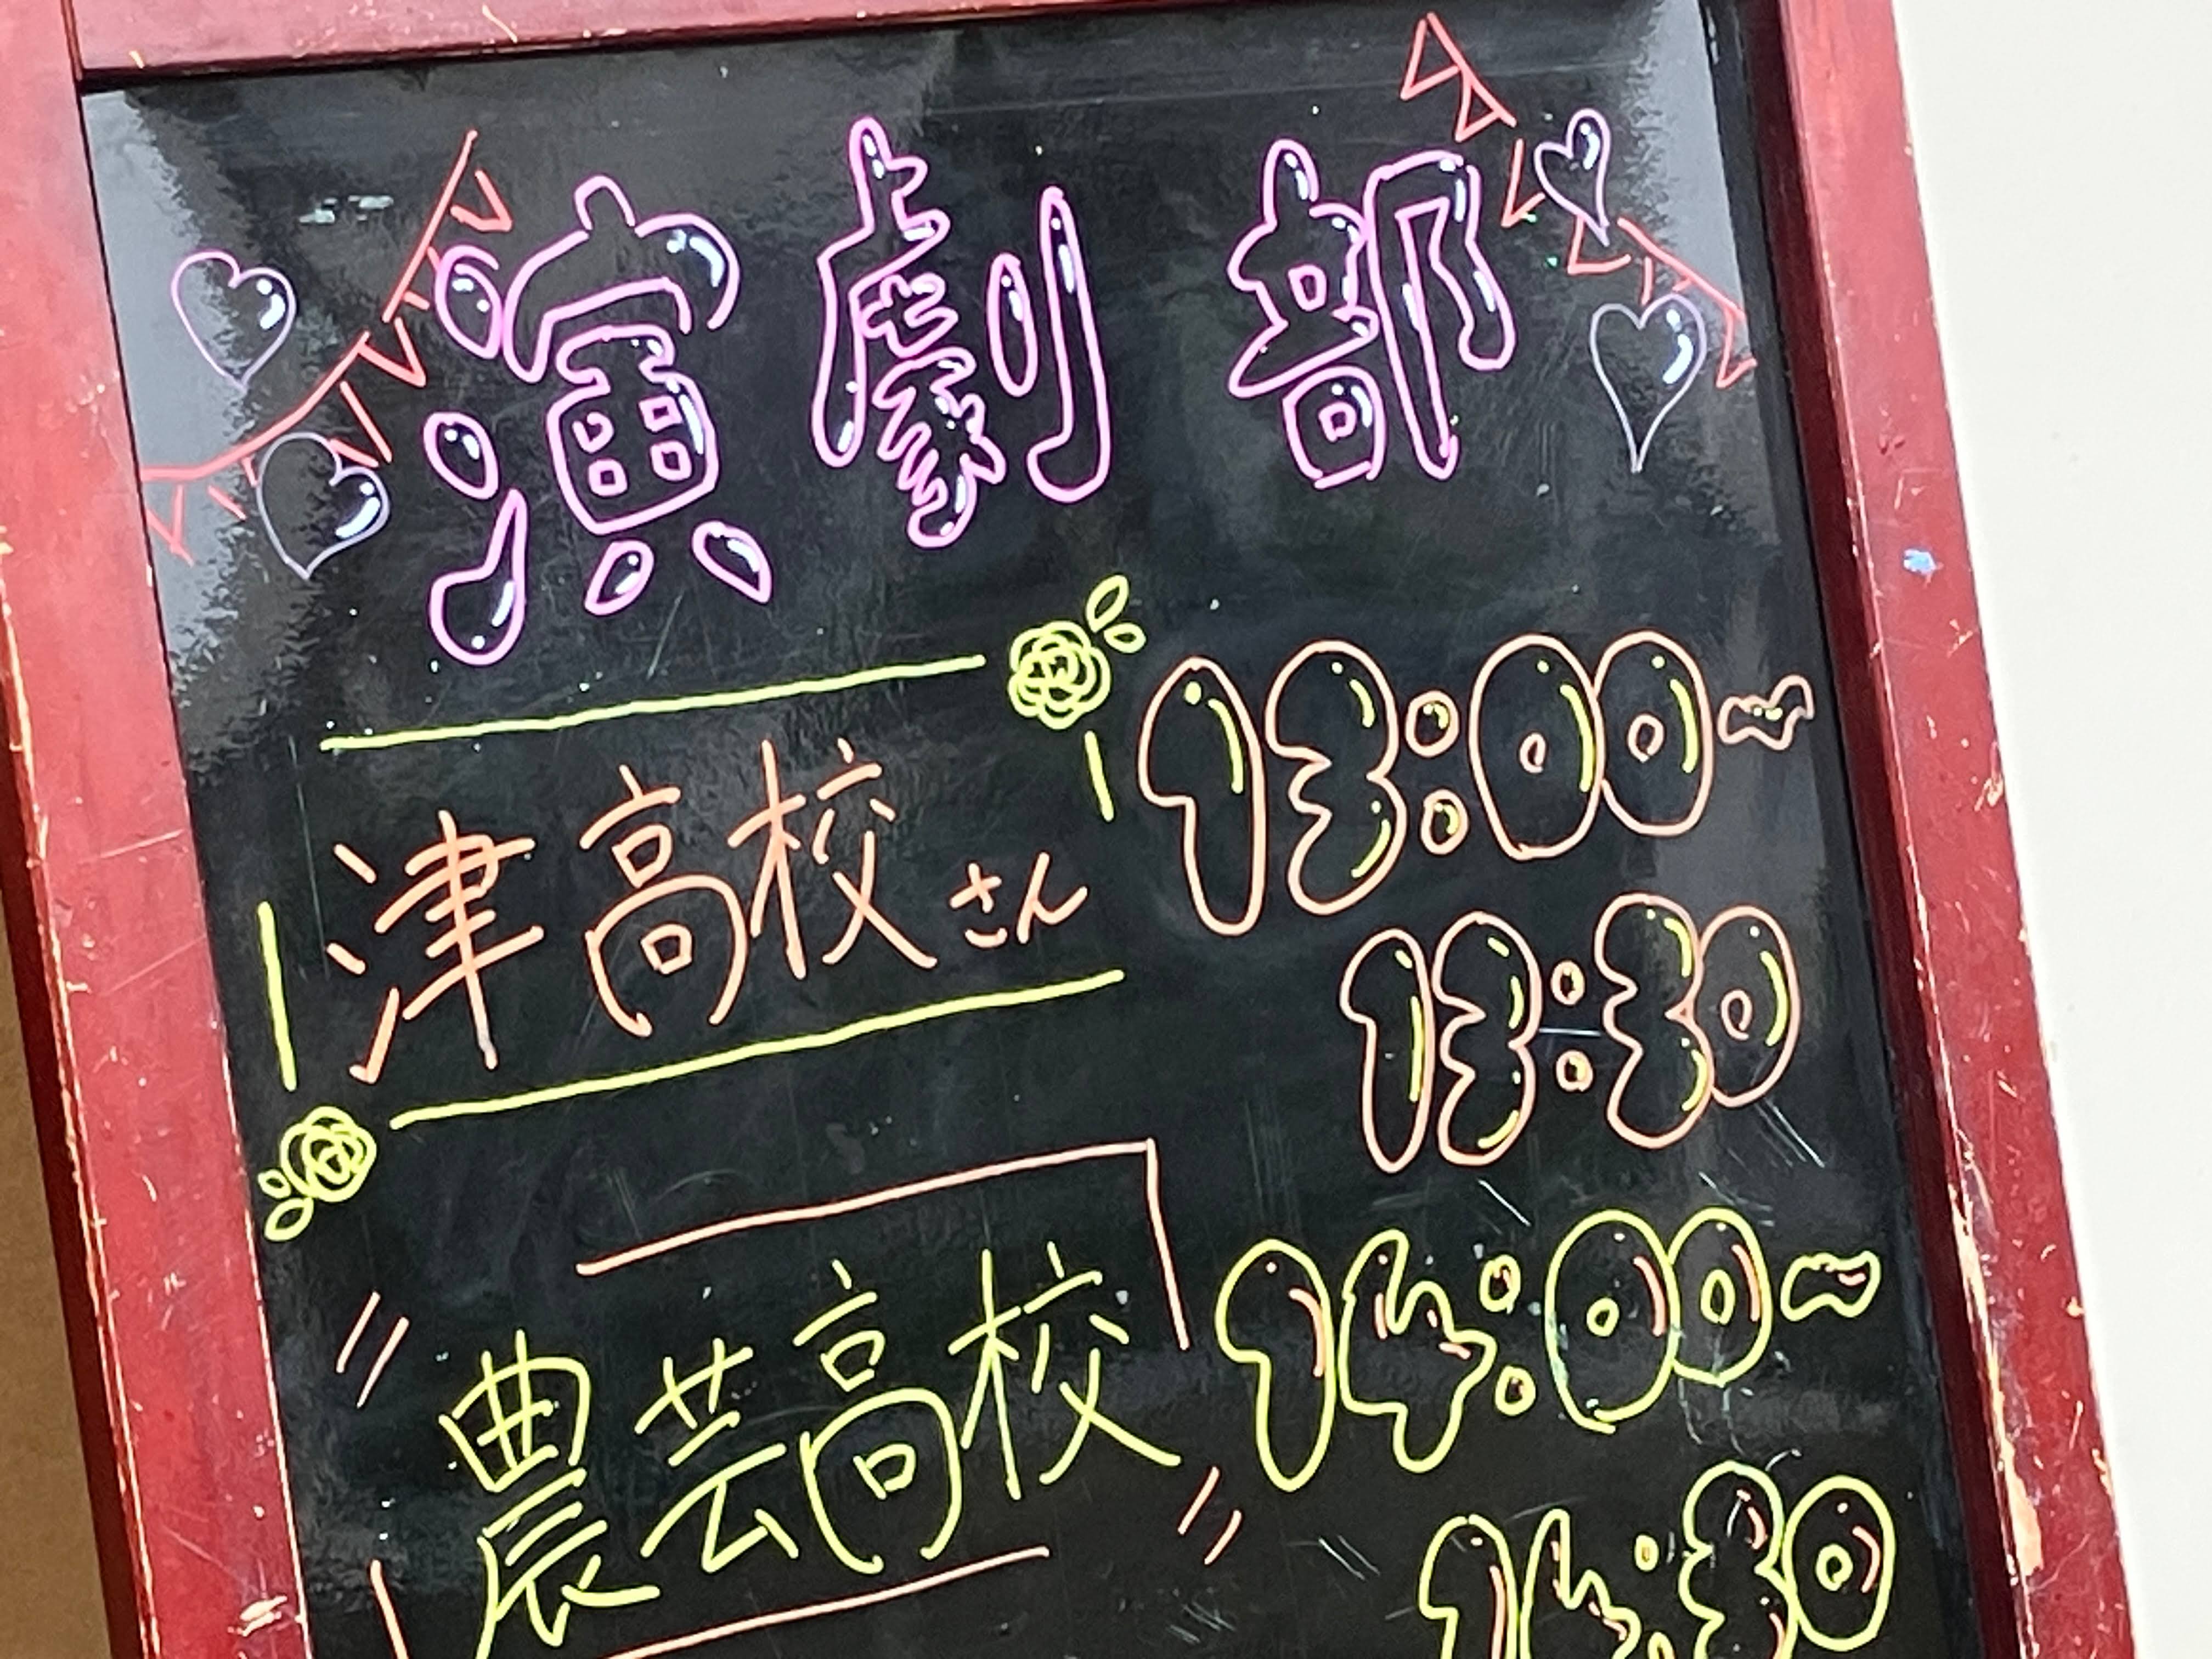 演劇部
津高校さん 13:00~
13:30
農芸高校 14:00~
14:30